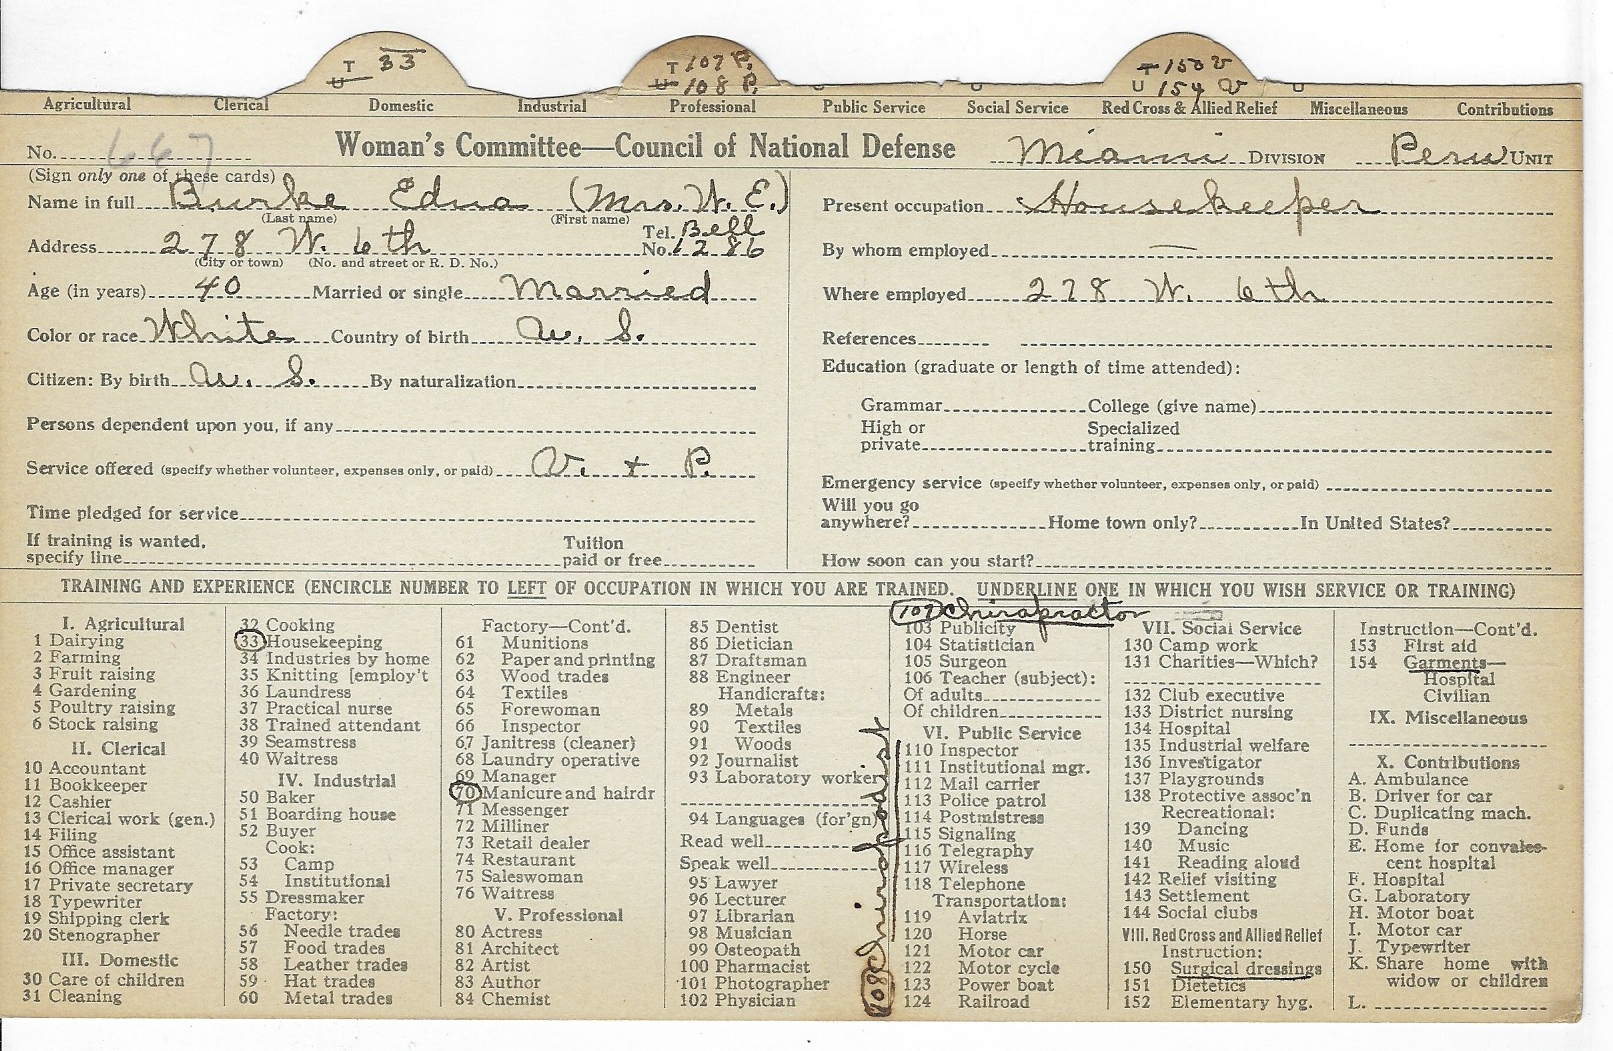 T 33
U
T 107 P.
U 108 P.
T 150 V
U 154 V
Agricultural Clerical Domestic Industrial Professional Public Service Social Service Red Cross & Allied Relief Miscellaneous Contributions
No. 667 Woman's Committee—Council of National Defense Miami DIVISION Peru UNIT
(Sign only one of these cards)
Name in full Burke Edna (Mrs. W. E.)
(Last name) (First name)
Address 278 W. 6th Tel. No. Bell 1286
(City or town) (No. and street or R. D. No.)
Age (in years) 40 Married or single Married
Color or race White Country of birth U. S.
Citizen: By birth U. S. By naturalization
Persons dependent upon you, if any
Service offered (specify whether volunteer, expenses only, or paid) V. + P.
Time pledged for service
If training is wanted, specify line Tuition paid or free
Present occupation Housekeeper
By whom employed —
Where employed 278 W. 6th
References
Education (graduate or length of time attended):
Grammar College (give name)
High or private Specialized training
Emergency service (specify whether volunteer, expenses only, or paid)
Will you go anywhere? Home town only? In United States?
How soon can you start?
TRAINING AND EXPERIENCE (ENCIRCLE NUMBER TO LEFT OF OCCUPATION IN WHICH YOU ARE TRAINED. UNDERLINE ONE IN WHICH YOU WISH SERVICE OR TRAINING)
I. Agricultural
1 Dairying
2 Farming
3 Fruit raising
4 Gardening
5 Poultry raising
6 Stock raising
II. Clerical
10 Accountant
11 Bookkeeper
12 Cashier
13 Clerical work (gen.)
14 Filing
15 Office assistant
16 Office manager
17 Private secretary
18 Typewriter
19 Shipping clerk
20 Stenographer
III. Domestic
30 Care of children
31 Cleaning
32 Cooking
33 Housekeeping
34 Industries by home
35 Knitting [employ't
36 Laundress
37 Practical nurse
38 Trained attendant
39 Seamstress
40 Waitress
IV. Industrial
50 Baker
51 Boarding house
52 Buyer
Cook:
53 Camp
54 Institutional
55 Dressmaker
Factory:
56 Needle trades
57 Food trades
58 Leather trades
59 Hat trades
60 Metal trades
Factory—Cont'd.
61 Munitions
62 Paper and printing
63 Wood trades
64 Textiles
65 Forewoman
66 Inspector
67 Janitress (cleaner)
68 Laundry operative
69 Manager
70 Manicure and hairdr
71 Messenger
72 Milliner
73 Retail dealer
74 Restaurant
75 Saleswoman
76 Waitress
V. Professional
80 Actress
81 Architect
82 Artist
83 Author
84 Chemist
85 Dentist
86 Dietician
87 Draftsman
88 Engineer
Handicrafts:
89 Metals
90 Textiles
91 Woods
92 Journalist
93 Laboratory worker
94 Languages (for'gn)
Read well
Speak well
95 Lawyer
96 Lecturer
97 Librarian
98 Musician
99 Osteopath
100 Pharmacist
101 Photographer
102 Physician
108 Chiropodist
107 Chiropractor
103 Publicity
104 Statistician
105 Surgeon
106 Teacher (subject):
Of adults
Of children
VI. Public Service
110 Inspector
111 Institutional mgr.
112 Mail carrier
113 Police patrol
114 Postmistress
115 Signaling
116 Telegraphy
117 Wireless
118 Telephone
Transportation:
119 Aviatrix
120 Horse
121 Motor car
122 Motor cycle
123 Power boat
124 Railroad
VII. Social Service
130 Camp work
131 Charities—Which?
132 Club executive
133 District nursing
134 Hospital
135 Industrial welfare
136 Investigator
137 Playgrounds
138 Protective assoc'n
Recreational:
139 Dancing
140 Music
141 Reading aloud
142 Relief visiting
143 Settlement
144 Social clubs
VIII. Red Cross and Allied Relief
Instruction:
150 Surgical dressings
151 Dietetics
152 Elementary hyg.
Instruction—Cont'd.
153 First aid
154 Garments—
Hospital
Civilian
IX. Miscellaneous
X. Contributions
A. Ambulance
B. Driver for car
C. Duplicating mach.
D. Funds
E. Home for convales-
cent hospital
F. Hospital
G. Laboratory
H. Motor boat
I. Motor car
J. Typewriter
K. Share home with
widow or children
L.